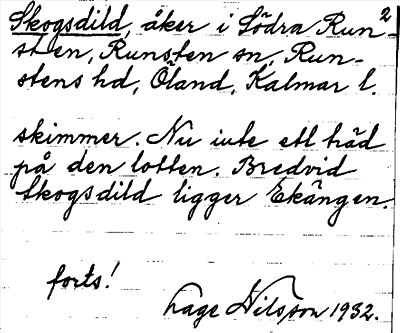 Skogsdild, åker i Södra Run- 2
sten, Runsten sn, Run-
stens hd, Öland, Kalmar l.
skimmer. Nu inte ett träd
på den lotten. Bredvid
Skogsdild ligger Ekängen.
forts!
Lage Nilsson 1932.